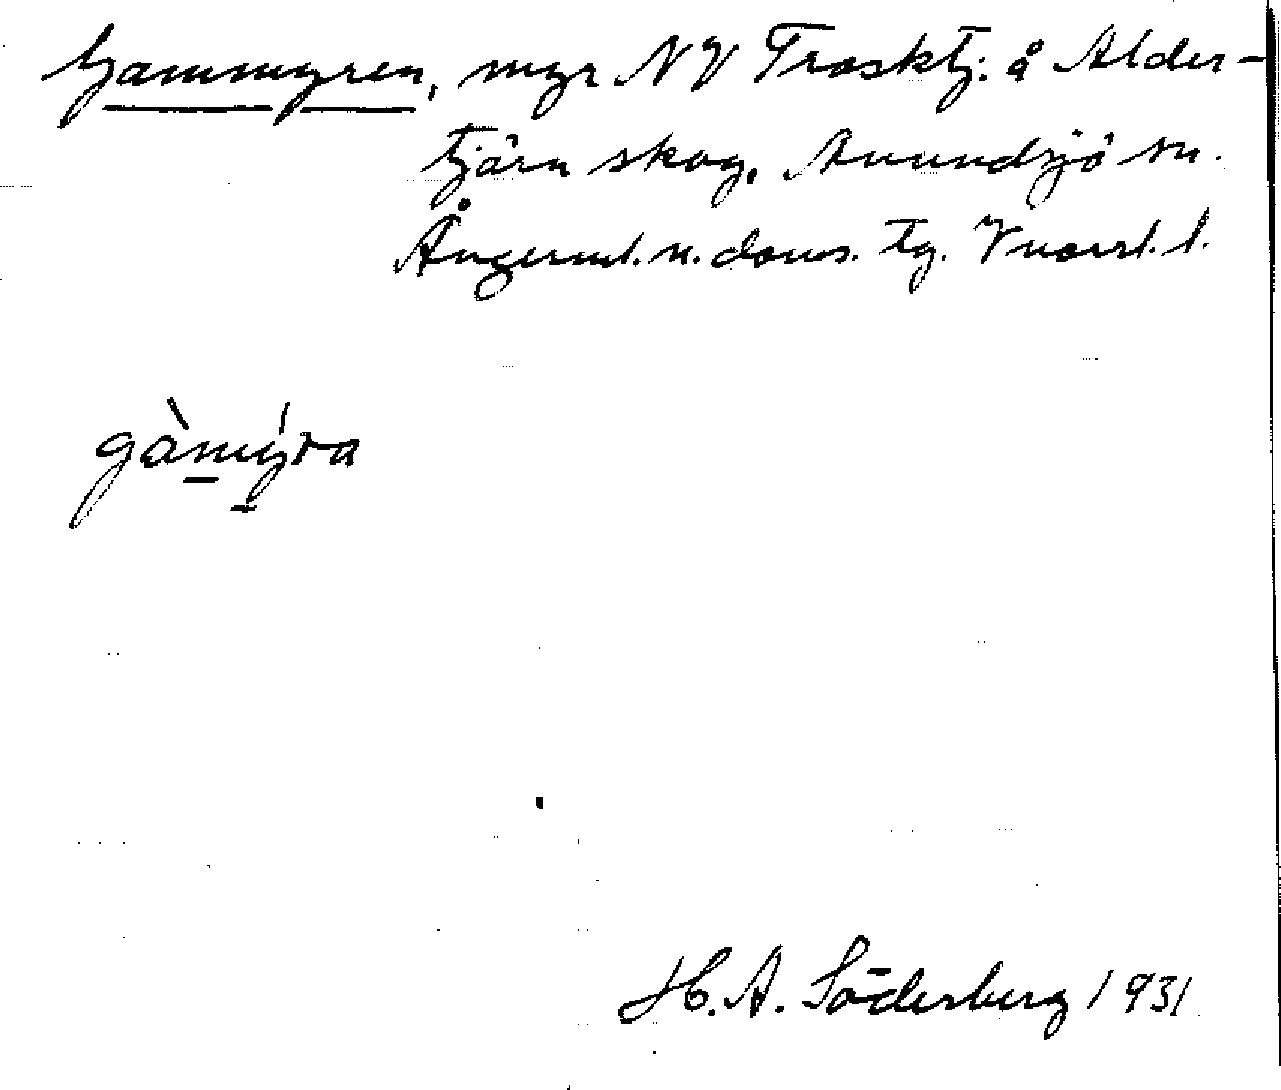 Gammyren, myr NV Trasktj. å Alder-
tjärn skog, Anundsjö sn.
Ångerml. n. doms. tg. Vnorrl. l.
gàmýra
H. A. Söderberg 1931